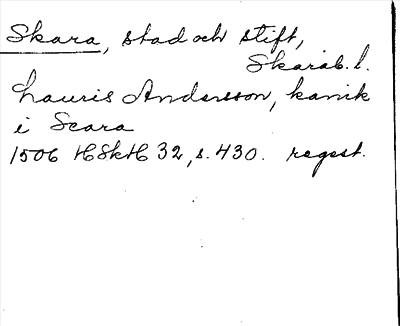 Skara, stad och stift,
Skarab. l.
Lauris Andersson, kanik
i Scara
1506 HSkH 32, s. 430. regest.